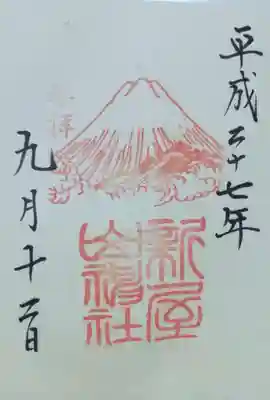 平成二十七年
奉拝
新屋
山神社
九月十二日